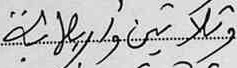 وثلاثين وأربعمائة